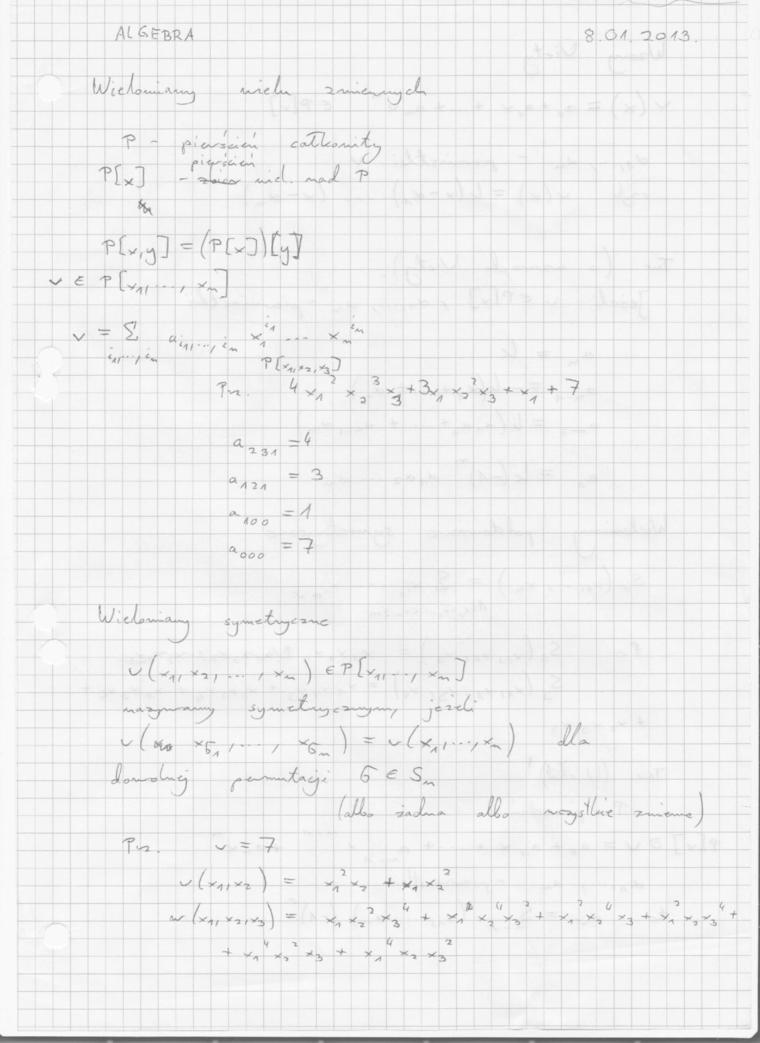 ALGEBRA 8.01.2013.
Wielomiany wielu zmiennych
P - pierścień całkowity
pierścień
P[x] - zbiór wiel. nad P
P[x,y] = (P[x])[y]
v ∈ P[x₁,..., xₙ]
v = Σ a_{i₁,...,iₙ} x₁^{i₁} ... xₙ^{iₙ}
i₁,...,iₙ
P[x₁,x₂,x₃]
Prz. 4x₁² x₂³ x₃ + 3x₁ x₂² x₃ + x₁ + 7
a₂₃₁ = 4
a₁₂₁ = 3
a₁₀₀ = 1
a₀₀₀ = 7
Wielomiany symetryczne
v(x₁, x₂, ..., xₙ) ∈ P[x₁,..., xₙ]
nazywamy symetrycznym, jeżeli
v(x_{σ₁},..., x_{σₙ}) = v(x₁,...,xₙ) dla
dowolnej permutacji σ ∈ Sₙ
(albo żadna albo wszystkie zmienne)
Prz. v = 7
v(x₁,x₂) = x₁² x₂ + x₁ x₂²
w(x₁,x₂,x₃) = x₁ x₂² x₃⁴ + x₁ x₂⁴ x₃² + x₁² x₂⁴ x₃ + x₁² x₂ x₃⁴ +
+ x₁⁴ x₂² x₃ + x₁⁴ x₂ x₃²